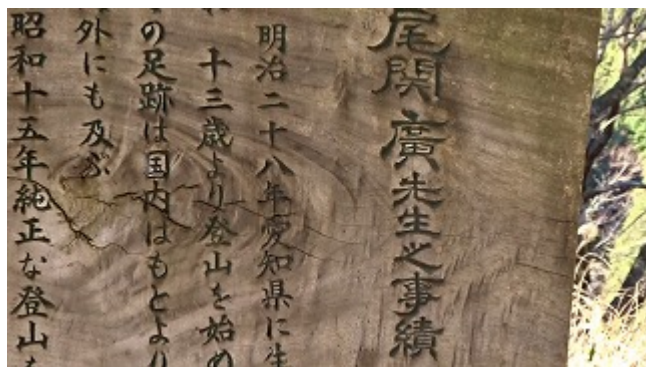 尾関廣先生之事績
明治二十八年愛知県に生
十三歳より登山を始め
の足跡は国内はもとより
外にも及ぶ
昭和十五年純正な登山